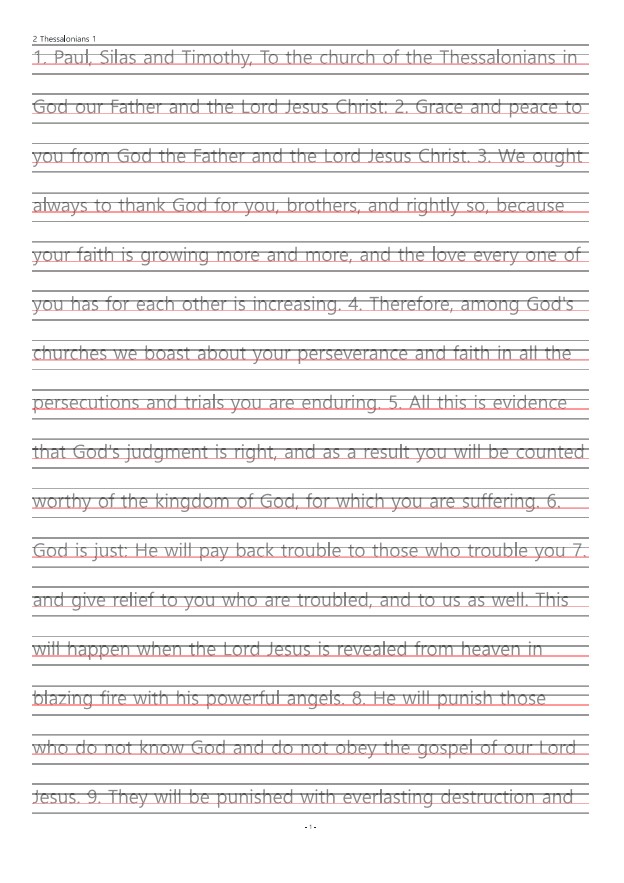 2 Thessalonians 1
1. Paul, Silas and Timothy, To the church of the Thessalonians in
God our Father and the Lord Jesus Christ: 2. Grace and peace to
you from God the Father and the Lord Jesus Christ. 3. We ought
always to thank God for you, brothers, and rightly so, because
your faith is growing more and more, and the love every one of
you has for each other is increasing. 4. Therefore, among God's
churches we boast about your perseverance and faith in all the
persecutions and trials you are enduring. 5. All this is evidence
that God's judgment is right, and as a result you will be counted
worthy of the kingdom of God, for which you are suffering. 6.
God is just: He will pay back trouble to those who trouble you 7.
and give relief to you who are troubled, and to us as well. This
will happen when the Lord Jesus is revealed from heaven in
blazing fire with his powerful angels. 8. He will punish those
who do not know God and do not obey the gospel of our Lord
Jesus. 9. They will be punished with everlasting destruction and
- 1 -